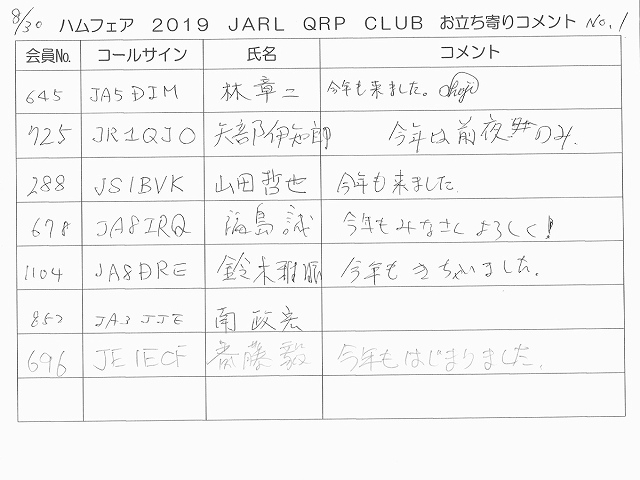 8/30 ハムフェア 2019 JARL QRP CLUB お立ち寄りコメント No.1
会員No. コールサイン 氏名 コメント
645 JA5DIM 林 章二 今年も来ました。
725 JR1QJO 矢部伊知郎 今年は前夜のみ.
288 JS1BVK 山田哲也 今年も来ました
678 JA8IRQ 福島 誠 今年もみなさんよろしく!
1104 JA8DRE 鈴木 今年も きちゃいました.
852 JA3JJE 南 政宏
696 JE1ECF 斎藤 毅 今年もはじまりました.